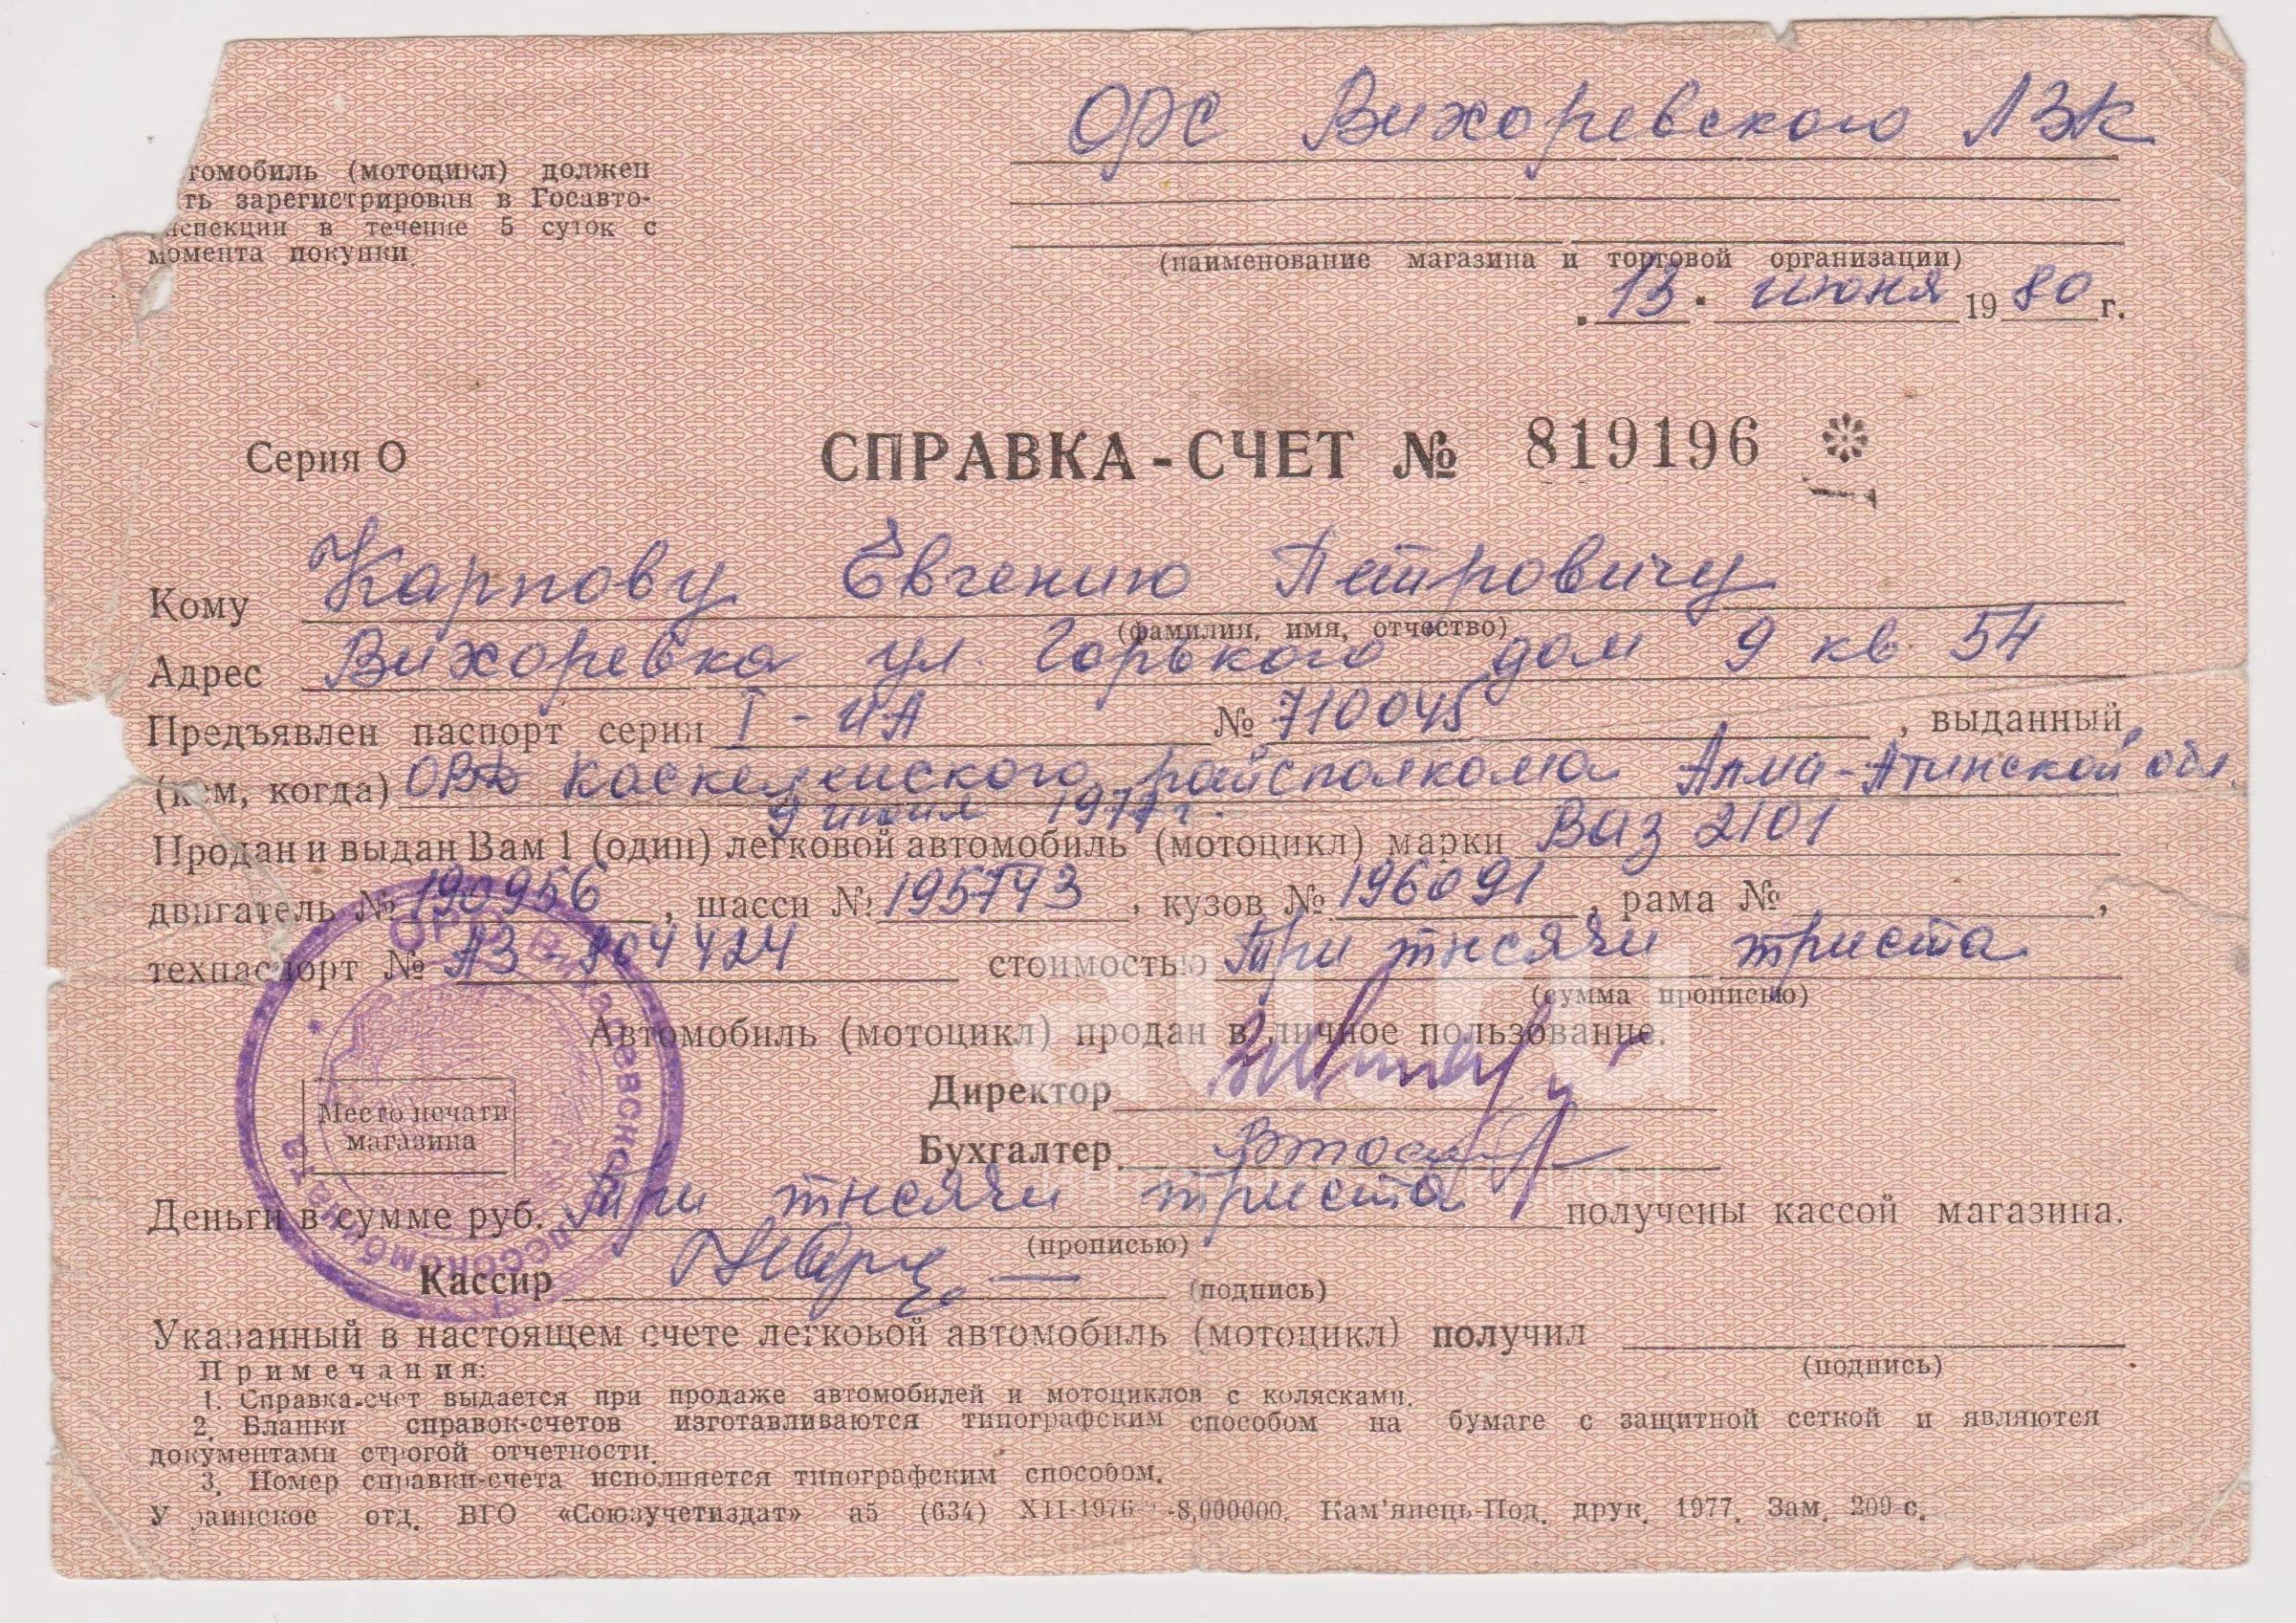 ОРС Вихоревского ЛЗК
томобиль (мотоцикл) должен
ть зарегистрирован в Госавто-
нспекции в течение 5 суток с
момента покупки.
(наименование магазина и торговой организации)
13. июня 1980 г.
Серия О СПРАВКА-СЧЕТ № 819196
Кому Карпову Евгению Петровичу
(фамилия, имя, отчество)
Адрес Вихоревка ул. Горького дом 9 кв 54
Предъявлен паспорт серии I-ЧА № 710045, выданный
(кем, когда) ОВД Каскеленского райсполкома Алма-Атинской обл.
9 июня 1977 г.
Продан и выдан Вам 1 (один) легковой автомобиль (мотоцикл) марки Ваз 2101
двигатель № 190956, шасси № 195743, кузов № 196091, рама №,
техпаспорт № АЗ-804424 стоимостью Три тысячи триста
(сумма прописью)
Автомобиль (мотоцикл) продан в личное пользование.
Директор
Бухгалтер
Место печати
магазина
Деньги в сумме руб. Три тысячи триста получены кассой магазина.
(прописью)
Кассир
(подпись)
Указанный в настоящем счете легковой автомобиль (мотоцикл) получил
(подпись)
Примечания:
1. Справка-счет выдается при продаже автомобилей и мотоциклов с колясками.
2. Бланки справок-счетов изготавливаются типографским способом на бумаге с защитной сеткой и являются
документами строгой отчетности.
3. Номер справки-счета исполняется типографским способом.
У раинское отд. ВГО «Союзучетиздат» а5 (634) XII-1976 -8,000000. Кам'янець-Под. друк. 1977. Зам. 209 с.